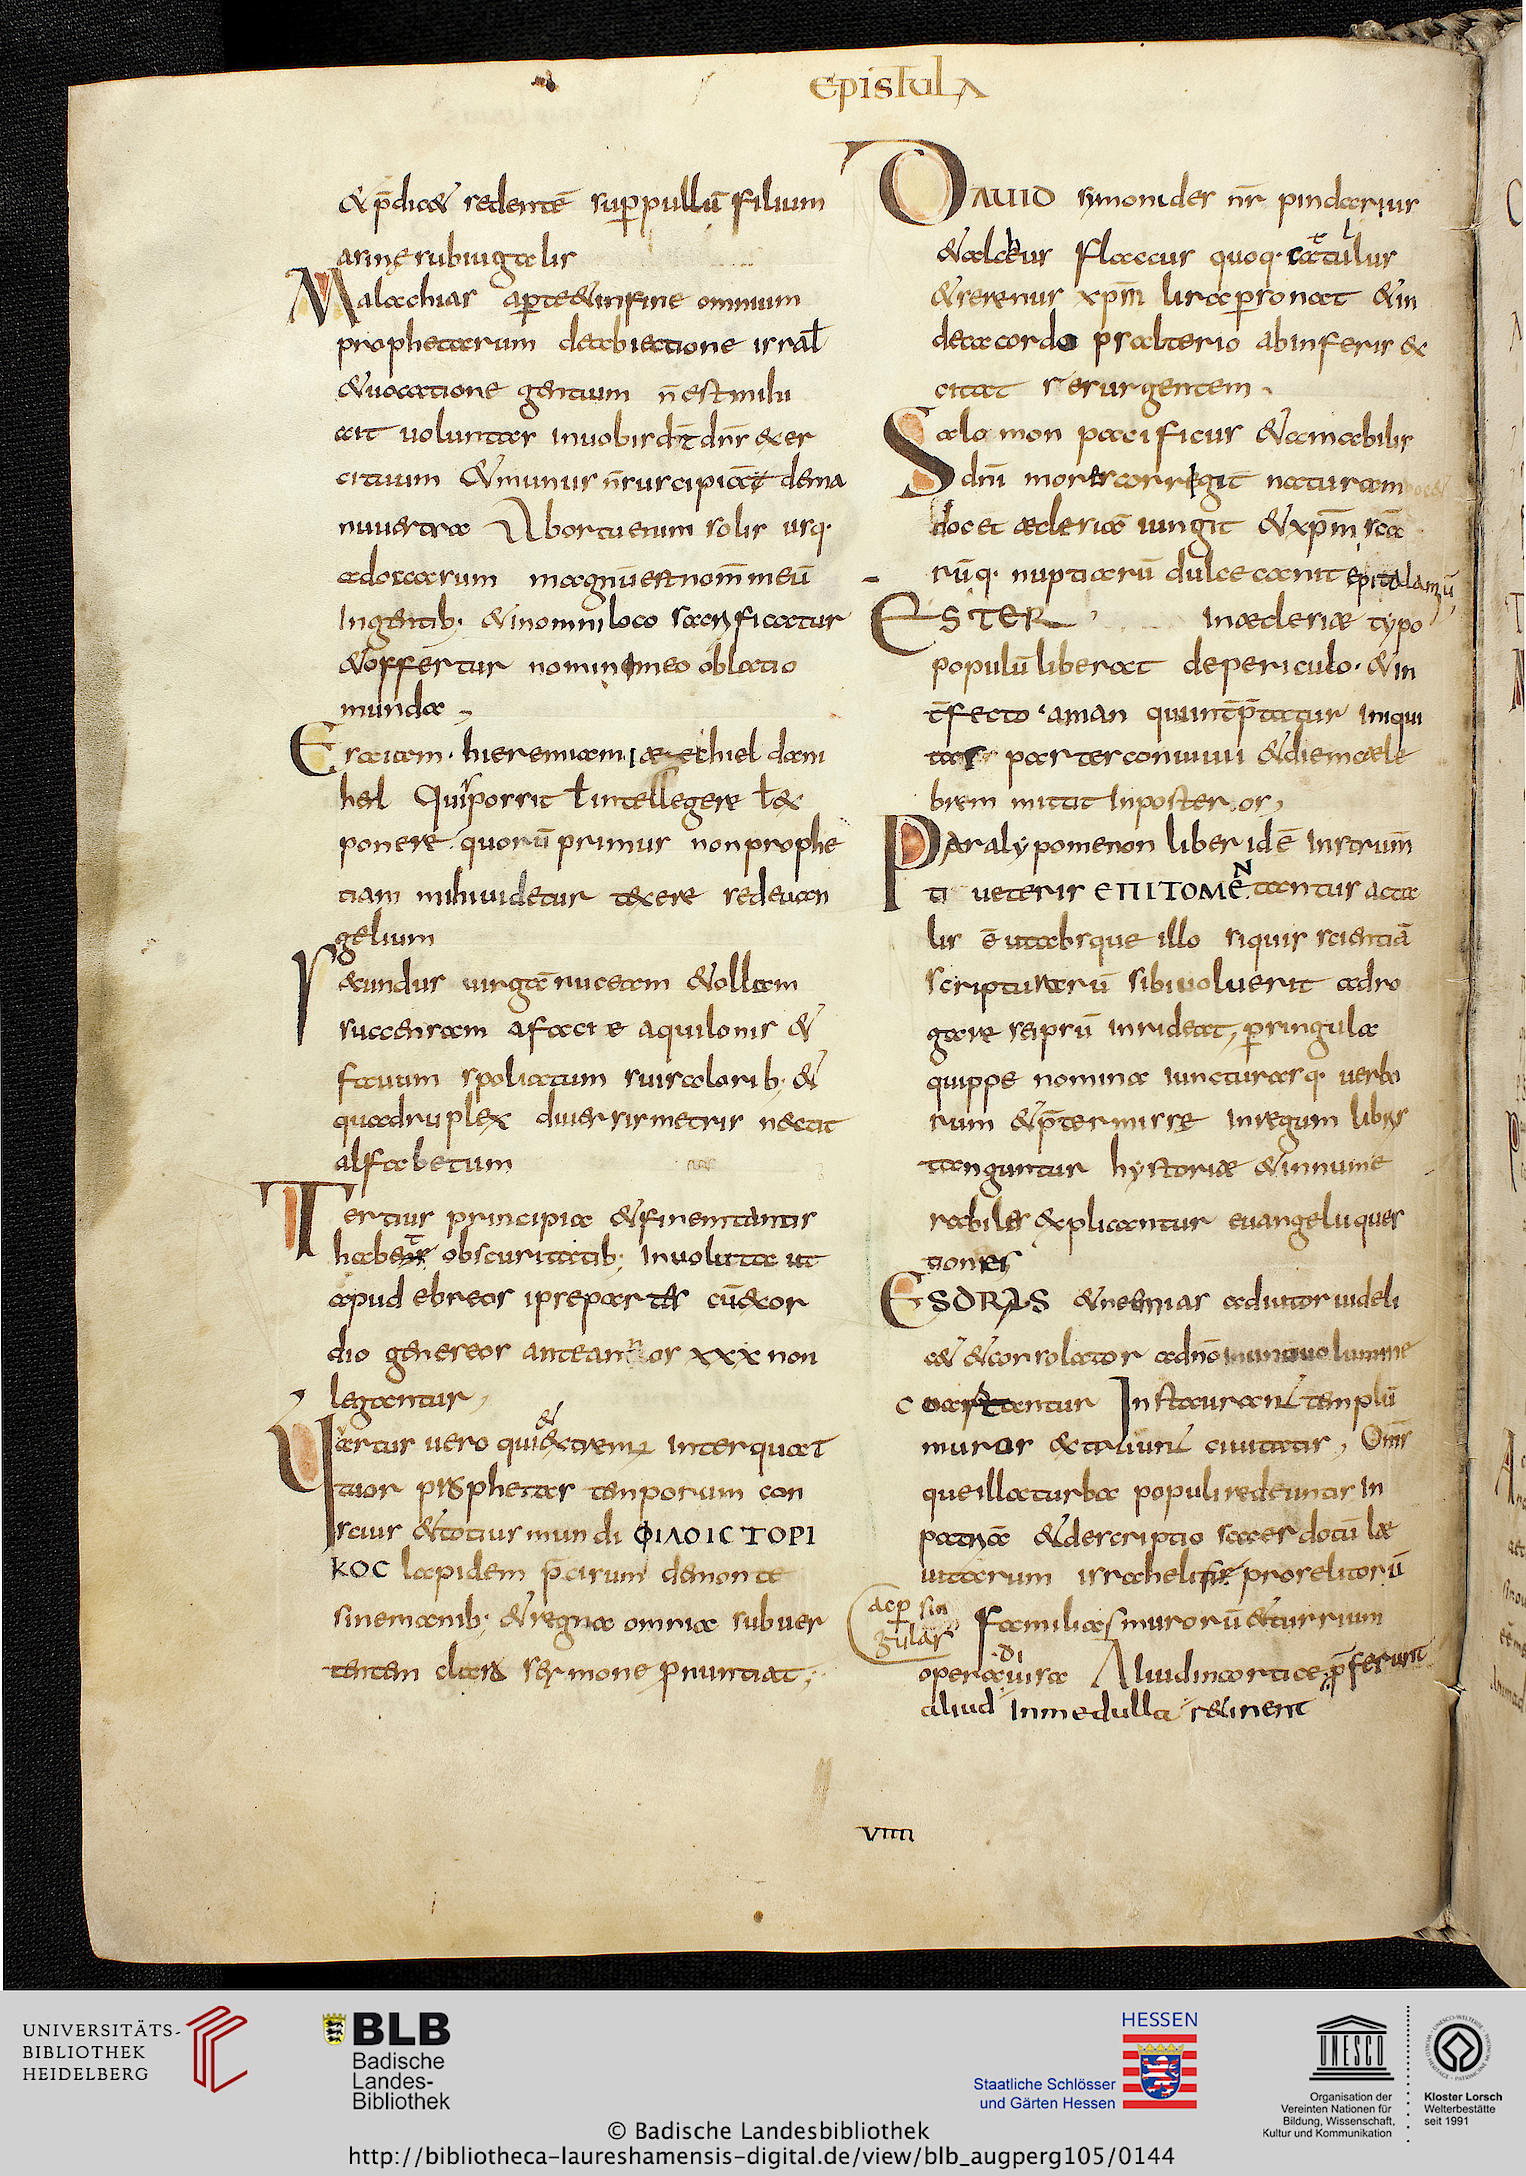 Epistula
& p̄dic& sedentē sup pullū filium
asine subiugalis
Malachias aperte & infine omnium
prophetarum deabiectione israł
& uocatione gentium n̄ est mihi
ait uoluntas inuobis dc̄t dn̄s exer
cituum & munus n̄ suscipiā dema
nu uestra Abortu enim solis usq·
adoccasum magnū est nom̄ meū
Ingentib· & inomni loco sacrificatur
& offertur nomini meo oblatio
munda
Esaiam· hieremiam, aezechiel dani
hel Quis possit ł intellegere ł ex
ponere quorū primus non prophe
tiam mihi uidetur texere sed euan
gelium
Secundus uirgā nuceam & ollam
succensam afacie aquilonis &
fauum spoliatum suis colorib; &
quadruplex diuersis metris nectit
alfabetum
Tertius principia & finem tantis
habet obscuritatib; Inuoluta ut
apud ebreos ipse partes cū exor
dio geneseos ante annos xxx non
legantur,
Quartus uero qui & extremus Inter quat
tuor prophetas temporum con
scius & totius mundi ΦΙΛΟΙCΤΟΡΙ
ΚΟC lapidem p̄cisum demonte
sinemanib; & regna omnia subuer
tentem claro sermone pnuntiat;
DAUID symonides nr̄ pindarus
& alcheus flaccus quoq· catulus
& serenus xpm̄ lira personat & in
decacordo psalterio abinferis ex
citat resurgentem.
Salomon pacificus & amabilis
dn̄i mores corregit naturam
docet aecleriā iungit & xpm̄, sc̄a
rūq· nuptiarū dulce canit epitalamiū,
ESTER Inaecleriae typo
populū liberat depericulo· & in
t̄fecto aman qui int̄p̄tatur iniqui
tas partes conuiuii & diem cele
brem mittit Inposteros,
Paralypomenon liber idē Instrum̄
ti ueteris ΕΠΙΤΟΜΕN. tantus ac ta
lis ē ut absque illo siquis scientiā
scripturarū sibi uoluerit adro
gare seipsū inrideat, per singula
quippe nomina iuncturasq· uerbo
rum & p̄termisse inregum libris
tanguntur hystoriae & innume
rabiles explicantur euangelii ques
tiones
ESDRAS & neemias adiutor uideli
c& & consolator adn̄o inuno uolumine
coartantur Instaurant templū
muros extruunt ciuitatis, Omnis
que illa turba populi redeuntis in
patriā & descriptio sacerdotū le
uitarum israheliter proselitorū
ac per sin
gulas
familias murorū & turrium
opera diuisa Aliud incortice p̄ferunt
aliud Inmedulla r&inent
viiii
UNIVERSITÄTS-
BIBLIOTHEK
HEIDELBERG
BLB
Badische
Landes-
Bibliothek
HESSEN
Staatliche Schlösser
und Gärten Hessen
UNESCO
Organisation der
Vereinten Nationen für
Bildung, Wissenschaft,
Kultur und Kommunikation
Kloster Lorsch
Welterbestätte
seit 1991
© Badische Landesbibliothek
http://bibliotheca-laureshamensis-digital.de/view/blb_augperg105/0144